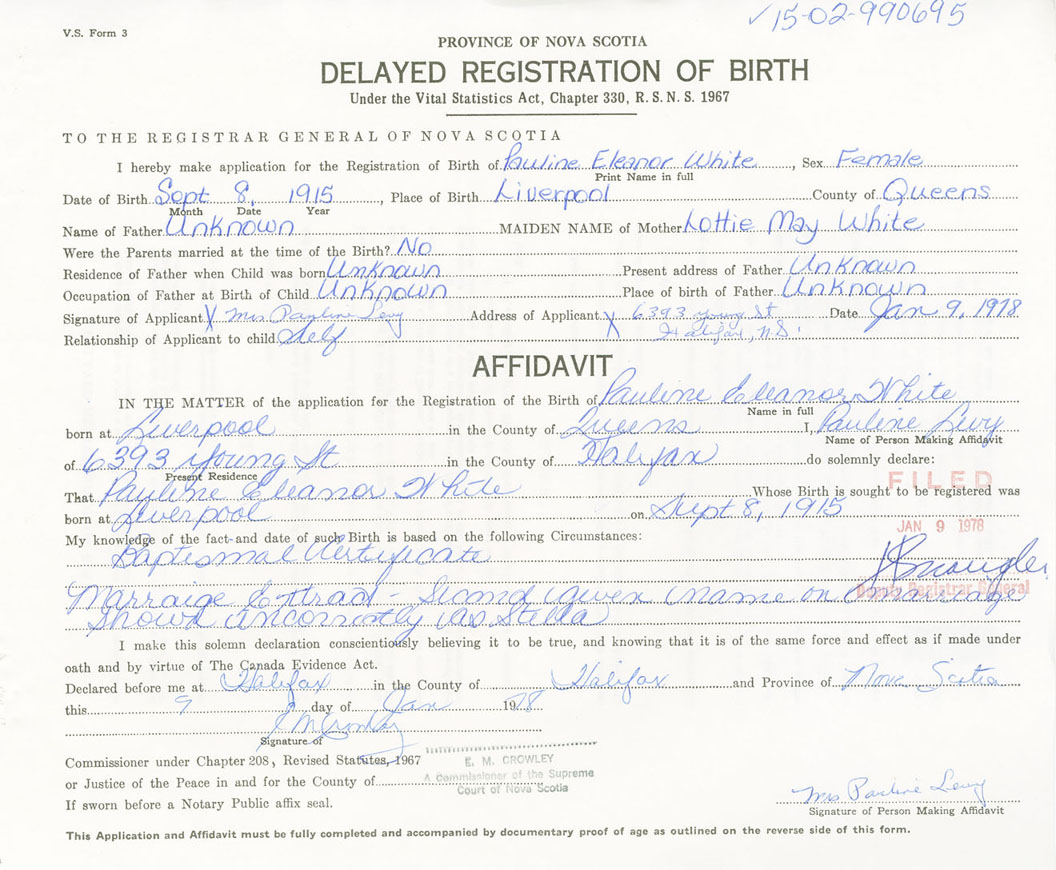 ✓15-02-990695
V.S. Form 3
PROVINCE OF NOVA SCOTIA
DELAYED REGISTRATION OF BIRTH
Under the Vital Statistics Act, Chapter 330, R.S.N.S. 1967
TO THE REGISTRAR GENERAL OF NOVA SCOTIA
I hereby make application for the Registration of Birth of Pauline Eleanor White, Sex Female
Print Name in full
Date of Birth Sept 8, 1915, Place of Birth Liverpool County of Queens
Month Date Year
Name of Father Unknown MAIDEN NAME of Mother Lottie May White
Were the Parents married at the time of the Birth? No
Residence of Father when Child was born Unknown Present address of Father Unknown
Occupation of Father at Birth of Child Unknown Place of birth of Father Unknown
Signature of Applicant X Mrs Pauline Levy Address of Applicant X 6393 Young St Date Jan 9, 1978
Halifax, N.S.
Relationship of Applicant to child Self
AFFIDAVIT
IN THE MATTER of the application for the Registration of the Birth of Pauline Eleanor White
Name in full
born at Liverpool in the County of Queens I, Pauline Levy
Name of Person Making Affidavit
of 6393 Young St in the County of Halifax do solemnly declare:
Present Residence
FILED
That Pauline Eleanor White Whose Birth is sought to be registered was
born at Liverpool on Sept 8, 1915
JAN 9 1978
My knowledge of the fact and date of such Birth is based on the following Circumstances:
Baptismal Certificate
Deputy Registrar General
Marraige Extract - Second given name on marriage
shown incorrectly as Stella
I make this solemn declaration conscientiously believing it to be true, and knowing that it is of the same force and effect as if made under
oath and by virtue of The Canada Evidence Act.
Declared before me at Halifax in the County of Halifax and Province of Nova Scotia
this 9 day of Jan 1978
E M Crowley
Signature of
Commissioner under Chapter 208, Revised Statutes, 1967
E. M. CROWLEY
or Justice of the Peace in and for the County of
A Commissioner of the Supreme
Court of Nova Scotia
If sworn before a Notary Public affix seal.
Mrs Pauline Levy
Signature of Person Making Affidavit
This Application and Affidavit must be fully completed and accompanied by documentary proof of age as outlined on the reverse side of this form.